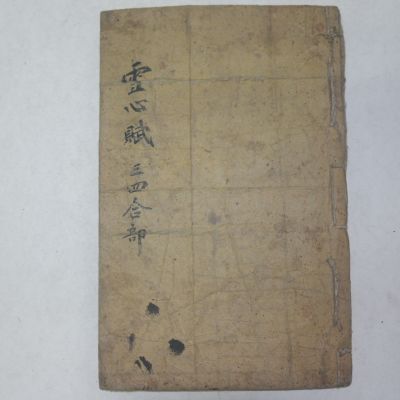 雪心賦 三四合部